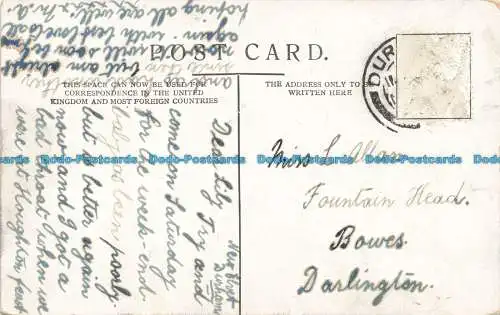 POST CARD.
THIS SPACE CAN NOW BE USED FOR
CORRESPONDENCE IN THE UNITED
KINGDOM AND MOST FOREIGN COUNTRIES
THE ADDRESS ONLY TO BE
WRITTEN HERE
DUR
Miss L Allan
Fountain Head.
Bowes.
Darlington.
Durham
Dear Lily Try and
come on Saturday
for the week-end.
baby as been poorly
but is better again
now and I got a
bad throat when we
were at Houghton feast
and
but am alright
now. will soon be
again. with best love to all
hoping all are well.
Dodo-Postcards Dodo-Postcards Dodo-Postcards Dodo-Postcards